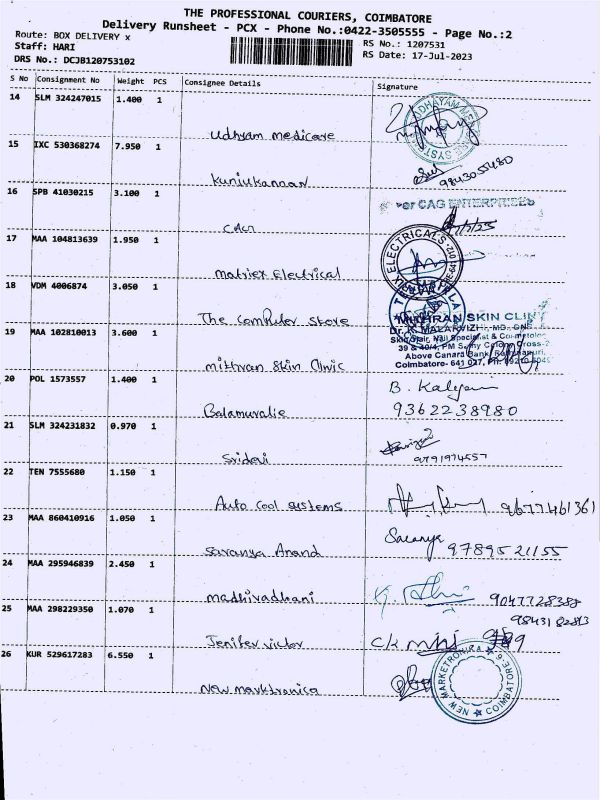 THE PROFESSIONAL COURIERS, COIMBATORE
Delivery Runsheet - PCX - Phone No.:0422-3505555 - Page No.:2
Route: BOX DELIVERY x
RS No.: 1207531
Staff: HARI
RS Date: 17-Jul-2023
DRS No.: DCJB120753102
S No Consignment No Weight PCS Consignee Details Signature
14 SLM 324247015 1.400 1
Udhyam medicare
15 IXC 530368274 7.950 1
Kunjukannan
9843055480
16 SPB 41030215 3.100 1
For CAG ENTERPRISES
CAG
17 MAA 104813639 1.950 1
ELECTRICALS
Matrix Electrical
18 VDM 4006874 3.050 1
The Computer Store
MITHRAN SKIN CLINIC
19 MAA 102810013 3.600 1
Dr. K. MALARVIZHI, MD, DNB
Skin, Hair, Nail Specialist & Cosmetologist
Above Canara Bank,
Coimbatore- 641 027, Ph:
mithran Skin Clinic
20 POL 1573557 1.400 1
B. Kalyani
Balamuralie
9362238980
21 SLM 324231832 0.970 1
Sridevi
9791974557
22 TEN 7555680 1.150 1
Auto Cool Systems
9677461361
23 MAA 860410916 1.050 1
Saranya
Saranya Anand
9789521155
24 MAA 295946839 2.450 1
madhivadhani
9047728388
25 MAA 298229350 1.070 1
Jenifer victor
26 KUR 529617283 6.550 1
New marktronica
NEW MARKETRONICA ★ COIMBATORE-6 ★